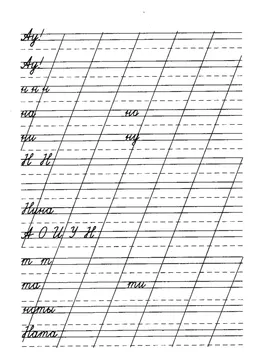 Ау!
Ау!
н н н
на но
ни ну
Н Н
Нина
А О И У Н
т т
та ти
ноты
Ната